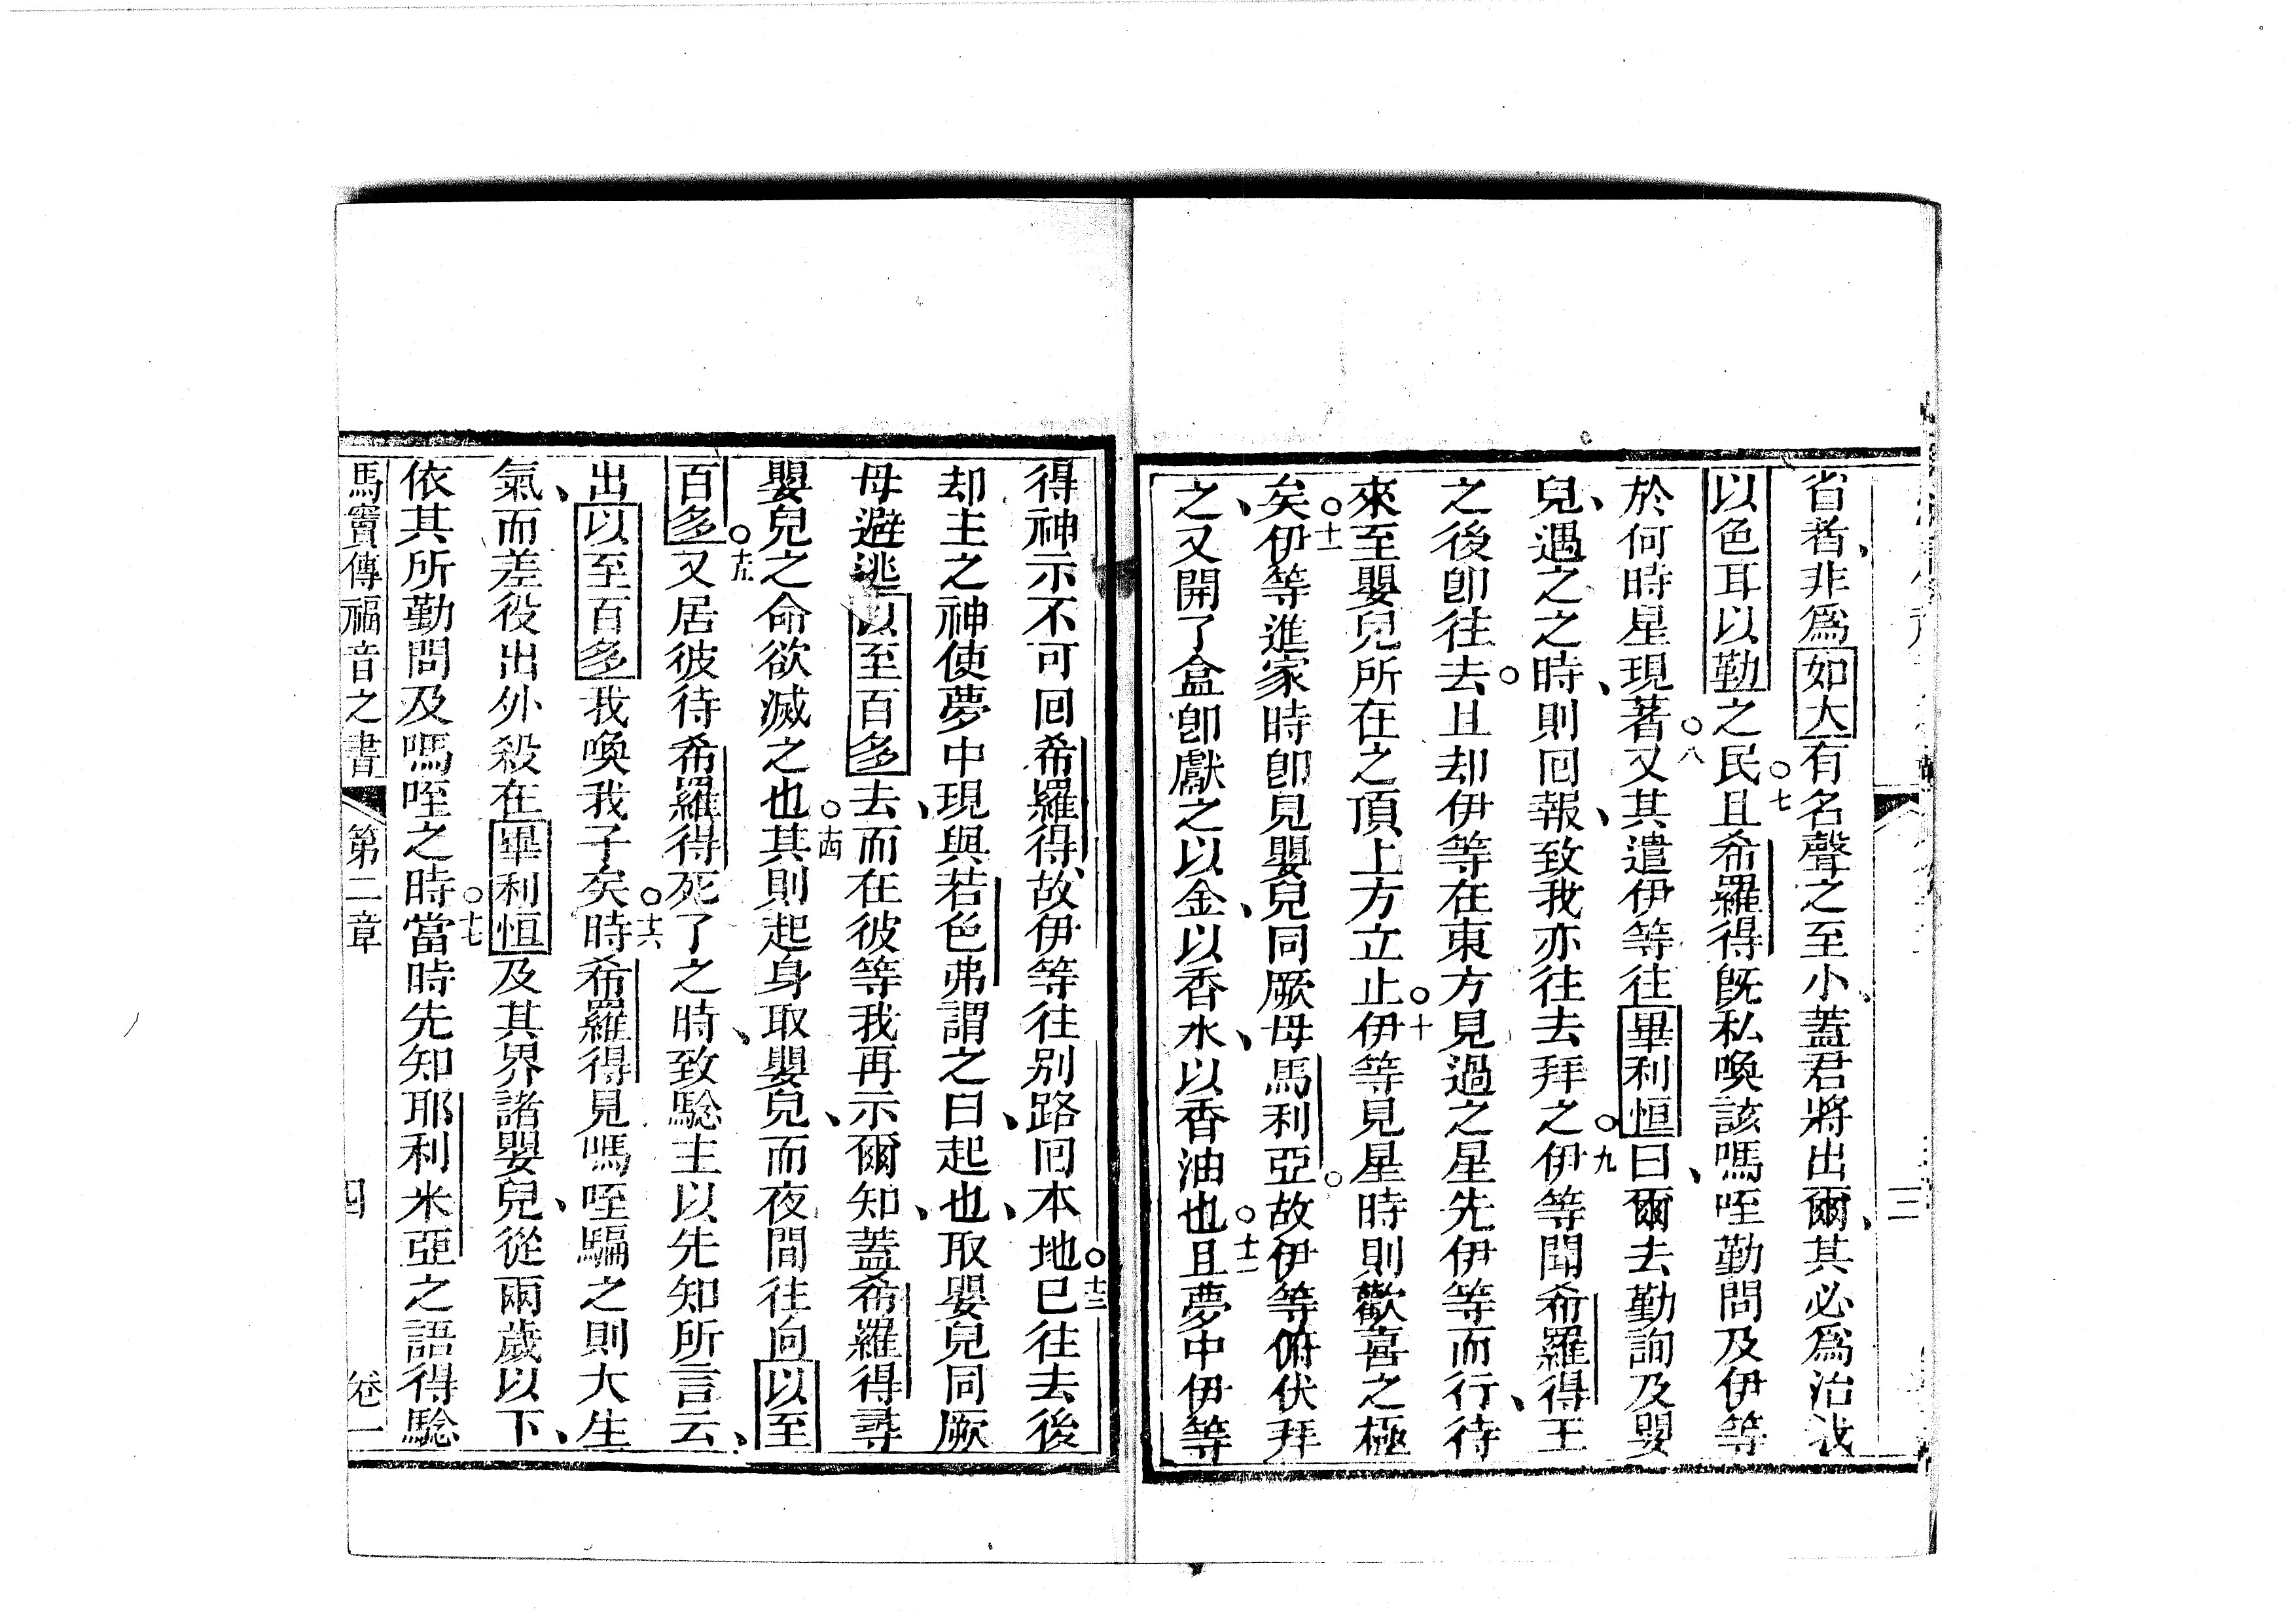 省者、非爲如大有名聲之至小、蓋君將出爾、其必爲治我
以色耳以勒之民○七且希羅得旣私喚該嗎咥勤問及伊等
於何時星現著○八又其遣伊等往畢利恒曰、爾去勤詢及嬰
兒、遇之之時、則回報、致我亦往去拜之○九伊等聞希羅得王
之後卽往去○且却伊等在東方見過之星先伊等而行、待
來至嬰兒所在之頂上方立止○十伊等見星時則歡喜之極
矣○十一伊等進家時卽見嬰兒同厥母馬利亞○故伊等俯伏拜
之、又開了盒卽獻之以金、以香水、以香油也○十二且夢中伊等
得神示不可回希羅得、故伊等往别路回本地○十三已往去後
却主之神使夢中現與若色弗謂之曰、起也、取嬰兒同厥
母避逃以至百多去、而在彼等我再示爾知、蓋希羅得尋
嬰兒之命欲滅之也○十四其則起身取嬰兒、而夜間往向以至
百多○十五又居彼待希羅得死了之時、致騐主以先知所言云、
出以至百多我喚我子矣○十六時希羅得見嗎咥騙之則大生
氣、而差役出外殺在畢利恒及其界諸嬰兒、從兩歲以下、
依其所勤問及嗎咥之時○十七當時先知耶利米亞之語得騐
馬竇傳福音之書 第二章 四 卷一